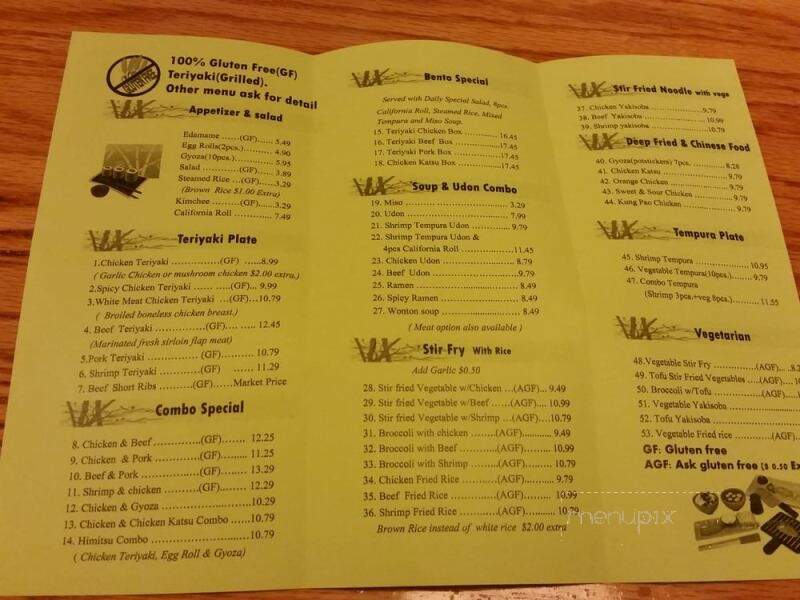 GLUTEN FREE
100% Gluten Free(GF)
Teriyaki(Grilled).
Other menu ask for detail
Appetizer & salad
Edamame ......(GF)...... 5.49
Egg Rolls(2pcs.)......... 4.90
Gyoza(10pcs.)............ 5.95
Salad ..............(GF).... 3.89
Steamed Rice ...(GF)....3.29
(Brown Rice $1.00 Extra)
Kimchee .........(GF).....3.29
California Roll ............. 7.49
Teriyaki Plate
1.Chicken Teriyaki ..............(GF) .......8.99
( Garlic Chicken or mushroom chicken $2.00 extra.)
2.Spicy Chicken Teriyaki ...... .....(GF)... 9.99
3.White Meat Chicken Teriyaki ...(GF)...10.79
( Broiled boneless chicken breast.)
4. Beef Teriyaki ................(GF).... ..... 12.45
(Marinated fresh sirloin flap meat)
5.Pork Teriyaki ............... (GF).......... 10.79
6. Shrimp Teriyaki ............ (GF) ...... 11.29
7. Beef Short Ribs ..........(GF)......Market Price
Combo Special
8. Chicken & Beef ..............(GF)....... 12.25
9. Chicken & Pork ...............(GF)........ 11.25
10. Beef & Pork ..................(GF)....... 13.29
11. Shrimp & chicken ..........(GF)........ 12.29
12. Chicken & Gyoza ........................10.29
13. Chicken & Chicken Katsu Combo ......10.79
14. Himitsu Combo ...........................10.79
( Chicken Teriyaki, Egg Roll & Gyoza)
Bento Special
Served with Daily Special Salad, 8pcs.
California Roll, Steamed Rice, Mixed
Tempura and Miso Soup.
15. Teriyaki Chicken Box ........... 16.45
16. Teriyaki Beef Box ................17.45
17. Teriyaki Pork Box ................17.45
18. Chicken Katsu Box ..............17.45
Soup & Udon Combo
19. Miso .................................. 3.29
20. Udon ................................. 7.99
21. Shrimp Tempura Udon ........... 9.79
22. Shrimp Tempura Udon &
4pcs California Roll .................11.45
23. Chicken Udon ...................... 8.79
24. Beef Udon ..........................9.79
25. Ramen ............................... 8.49
26. Spicy Ramen ....................... 8.49
27. Wonton soup ....................... 8.49
( Meat option also available )
Stir Fry With Rice
Add Garlic $0.50
28. Stir fried Vegetable w/Chicken ...(AGF)... 9.49
29. Stir fried Vegetable w/Beef ......(AGF).... 10.99
30. Stir fried Vegetable w/Shrimp ...(AGF)....10.79
31. Broccoli with chicken ........(AGF)........... 9.49
32. Broccoli with Beef ...........(AGF)........... 10.99
33. Broccoli with Shrimp ........(AGF)........... 10.79
34. Chicken Fried Rice ...........(AGF)........... 9.79
35. Beef Fried Rice ...............(AGF)........... 10.99
36. Shrimp Fried Rice ............(AGF)........... 10.79
Brown Rice instead of white rice $2.00 extra
Stir Fried Noodle with vege
37. Chicken Yakisoba .................9.79
38. Beef Yakisoba .....................10.99
39. Shrimp yakisoba ..................10.79
Deep Fried & Chinese Food
40. Gyoza(potstickers) 7pcs. ......... 8.28
41. Chicken Katsu ..................... 9.79
42. Orange Chicken ................... 9.79
43. Sweet & Sour Chicken ........... 9.79
44. Kung Pao Chicken ................ 9.79
Tempura Plate
45. Shrimp Tempura ................. 10.95
46. Vegetable Tempura(10pcs.)....... 9.79
47. Combo Tempura
(Shrimp 3pcs.+veg 8pcs.)......... 11.55
Vegetarian
48.Vegetable Stir Fry ..............(AGF)
49. Tofu Stir Fried Vegetables ...(AGF)
50. Broccoli w/Tofu ................(AGF)
51. Vegetable Yakisoba
52. Tofu Yakisoba
53. Vegetable Fried rice ..........(AGF)
GF: Gluten free
AGF: Ask gluten free ($ 0.50 Ex
menupix